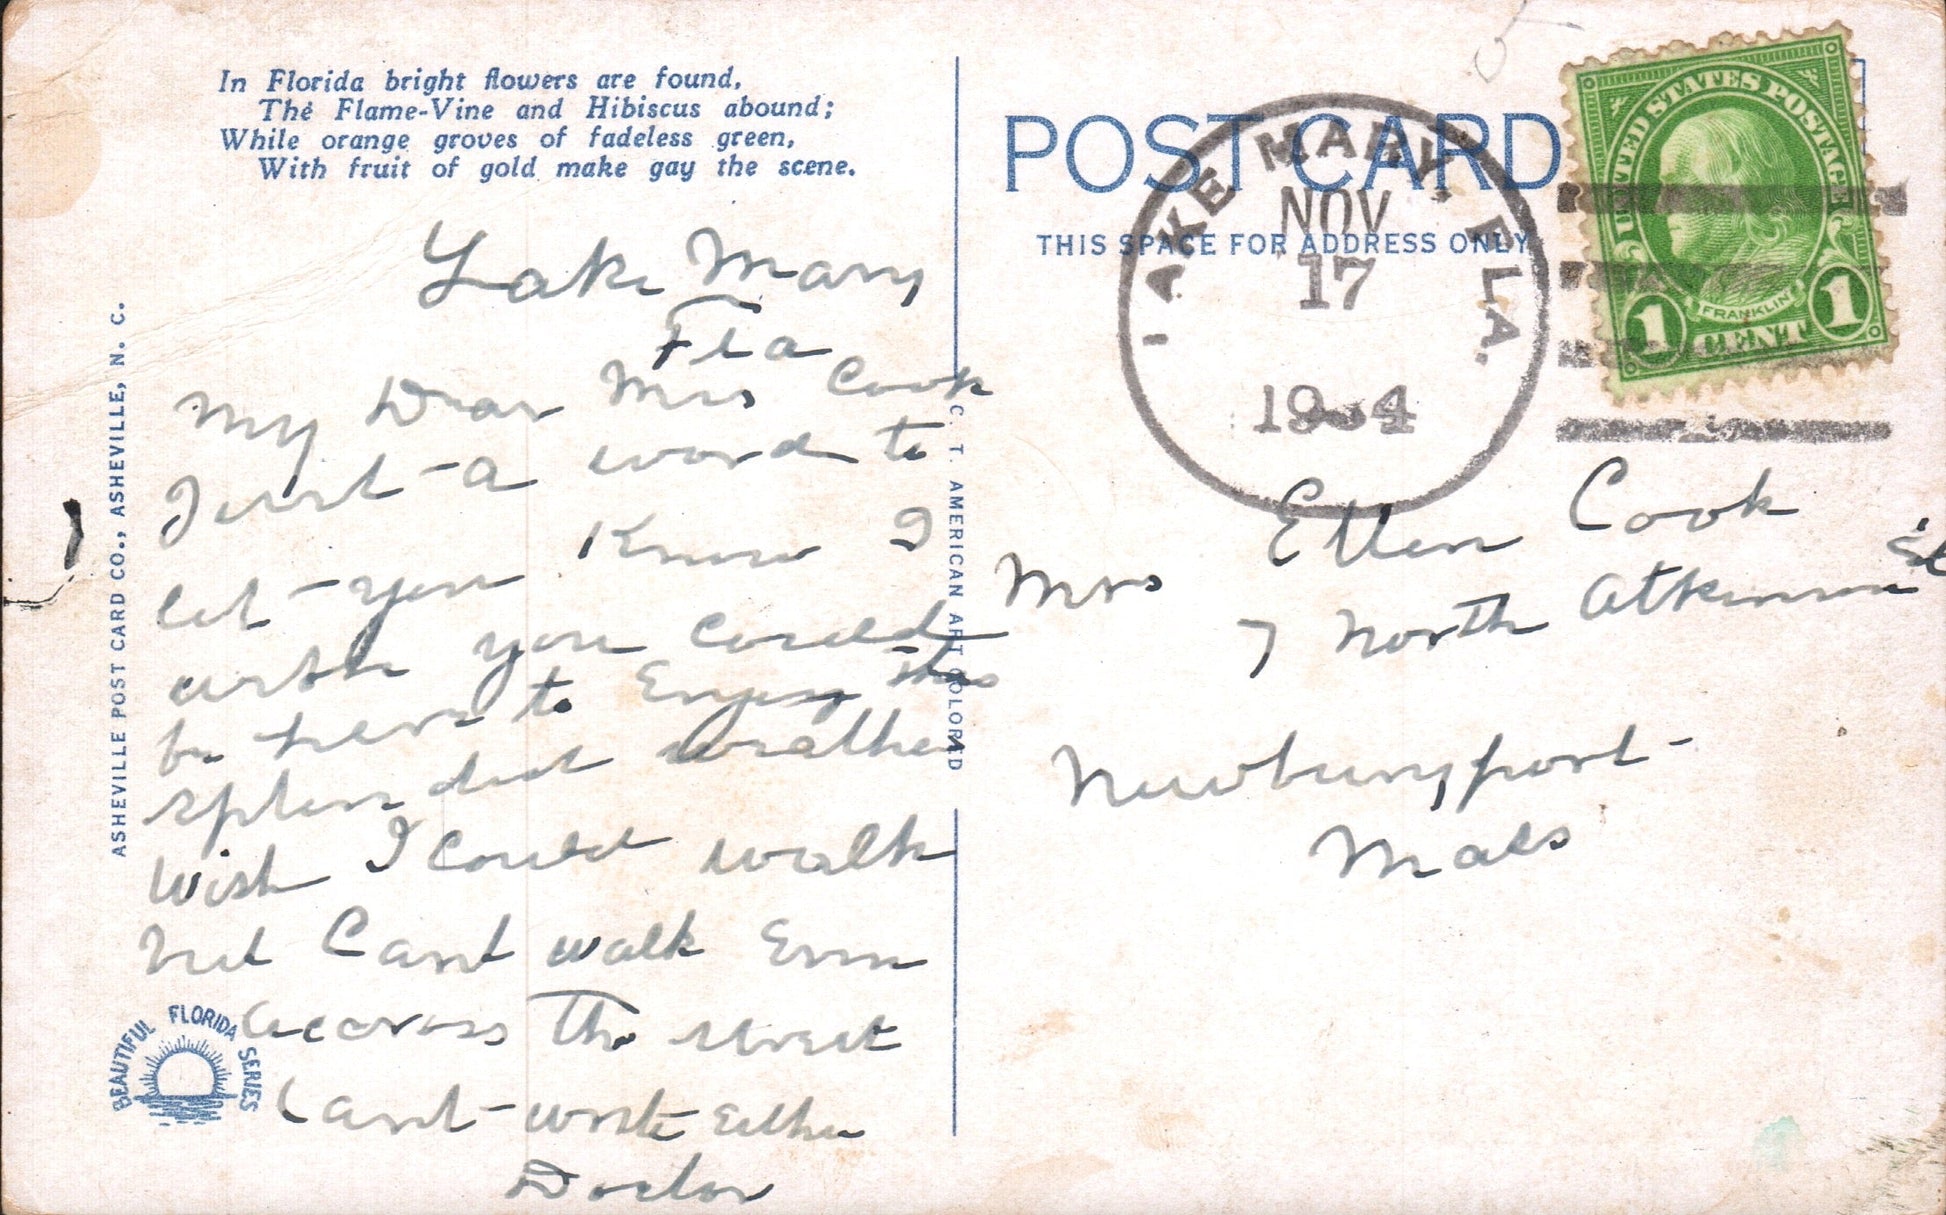 In Florida bright flowers are found,
The Flame-Vine and Hibiscus abound;
While orange groves of fadeless green,
With fruit of gold make gay the scene.
Lake Mary
Fla
My Dear Mrs Cook
Just a word to
let you Know I
wish you Could
be here to Enjoy this
splendid weather
Wish I Could walk
but Cant walk Even
accross the street
Cant write Either
Doctor
ASHEVILLE POST CARD CO., ASHEVILLE, N. C.
BEAUTIFUL FLORIDA SERIES
C. T. AMERICAN ART COLORED
POST CARD
THIS SPACE FOR ADDRESS ONLY
LAKE MARY, FLA.
NOV
17
1934
UNITED STATES POSTAGE
FRANKLIN
1 CENT 1
Mrs Ellen Cook
7 North Atkinson St
Newburyport
Mass